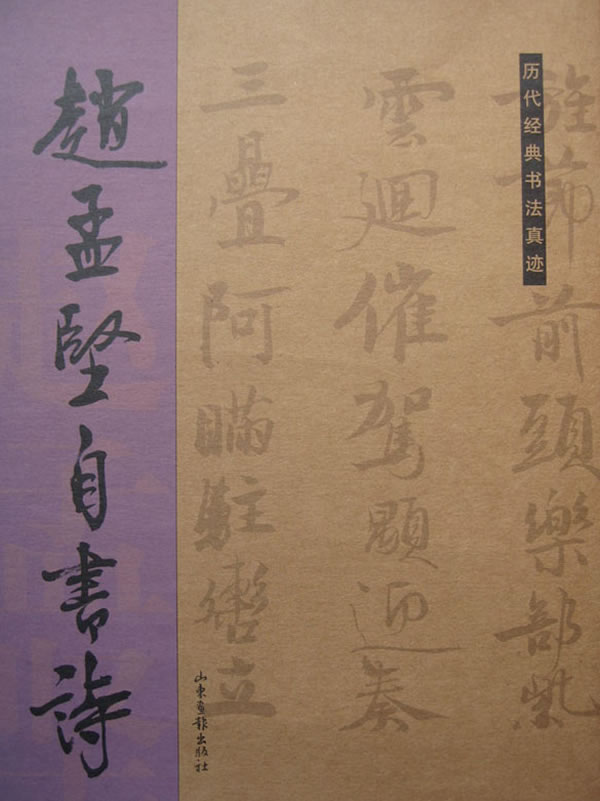 历代经典书法真迹
旌節前頭樂部紫
雲迴催駕迎奏
三疊阿瞞駐轡立
山東畫報出版社
趙孟堅自書詩